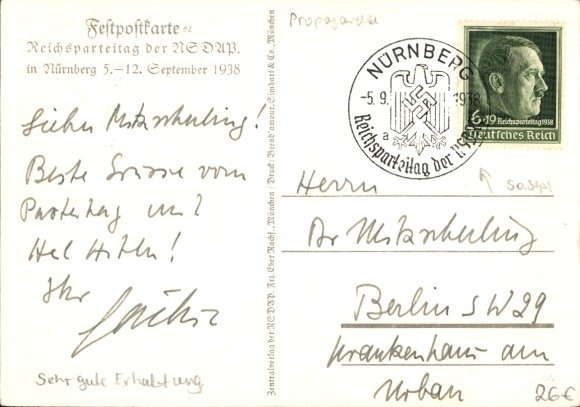 Festpostkarte
Reichsparteitag der NSDAP.
in Nürnberg 5.–12. September 1938
Propaganda
NÜRNBERG
-5.9. 1938
a
Reichsparteitag der NSDAP
6+19 Reichsparteitag 1938
Deutsches Reich
So.Stpl
Zentralverlag der NSDAP. Frz. Eher Nachf., München / Druck: Brend'amour, Simhart & Co., München
Lieber Mitscherling!
Beste Grüsse vom
Parteitag und
Heil Hitler!
Ihr
Sehr gute Erhaltung
Herrn
Dr Mitscherling
Berlin SW 29
Krankenhaus am
Urban
26€